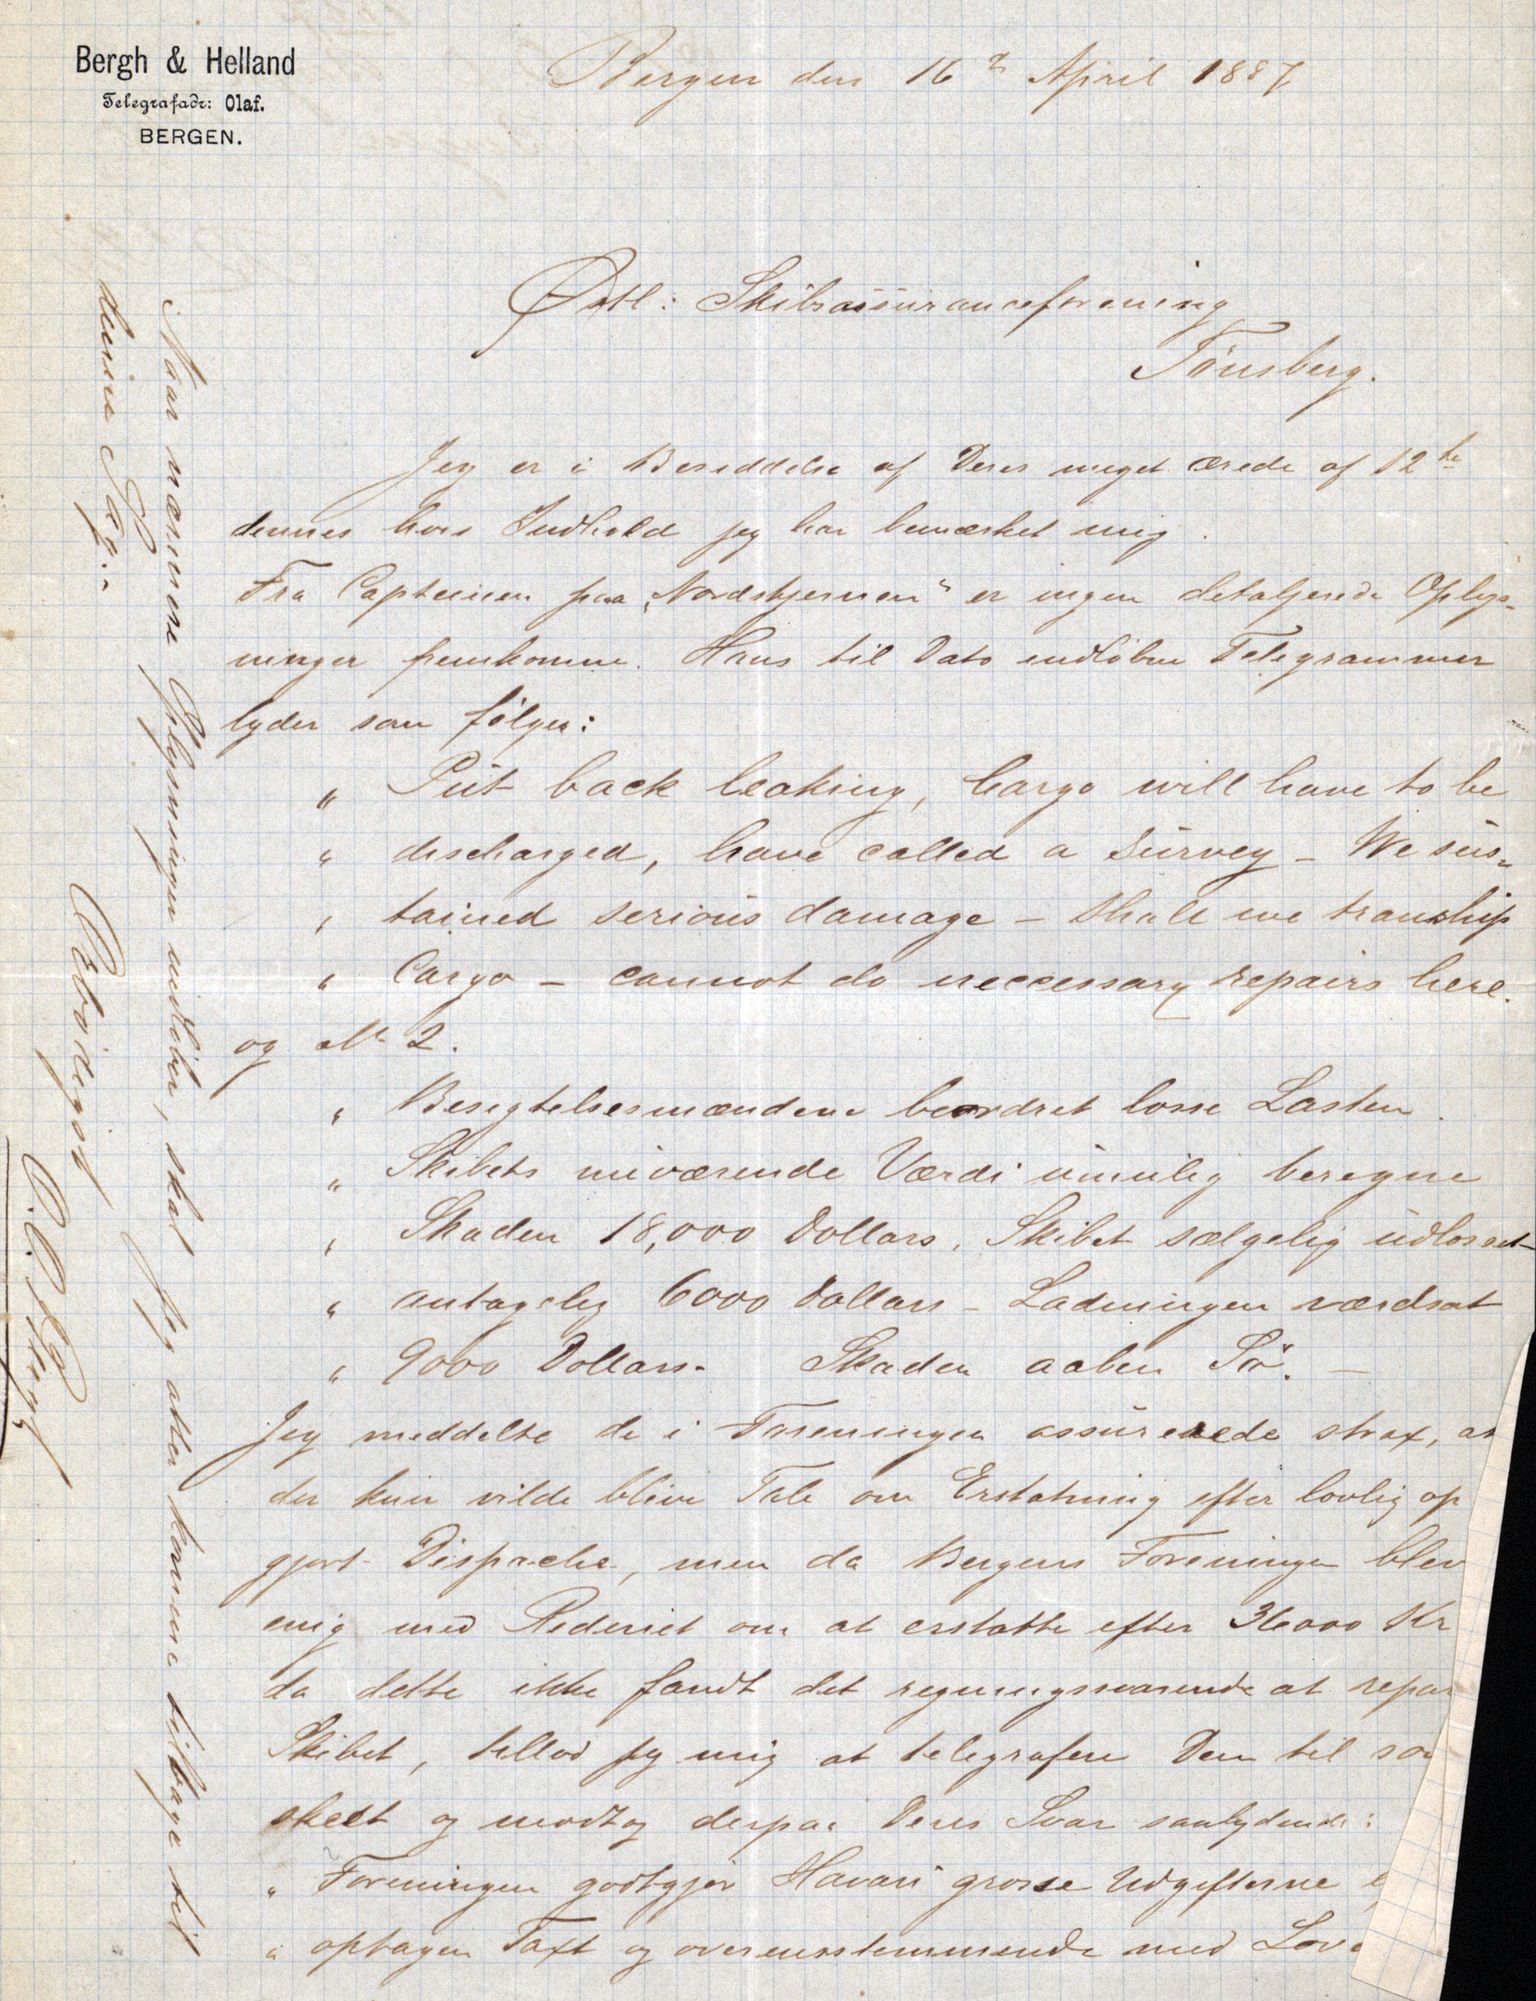 Bergh & Helland
Telegrafadr: Olaf.
BERGEN.
Bergen den 16 April 1887
Østl: Skibsassuranceforening
Tønsberg.
Jeg er i Besiddelse af Deres meget ærede af 12te
dennes hvis Indhold jeg har bemærket mig.
Fra Capteinen paa „Nordstjernen“ er ingen detaljerede Oplys-
ninger fremkomne. Hans til Dato indløbne Telegrammer
lyder som følger:
„ Put back leaking, Cargo will have to be
„ discharged, have called a survey – We sus-
„ tained serious damage – shall we tranship
„ Cargo – cannot do neccessary repairs here.
og No 2.
„ Besigtelsesmændene beordret losse Lasten.
„ Skibets nuværende Værdi umulig beregne
„ Skaden 18,000 Dollars. Skibet sælgelig udlosset
„ antagelig 6000 Dollars – Ladningen værdsat
„ 9000 Dollars. Skaden aaben Sø. –
Jeg meddelte de i Foreningen assurerede strax, at
der kun vilde blive Tale om Erstatning efter lovlig op
gjort Dispache, men da Bergens Foreninger blev
enig med Rederiet om at erstatte efter 36000 Kr
da dette ikke fandt det regningssvarende at repar
Skibet, tillod jeg mig at telegrafere Dem til som
skeet og modtog derpaa Deres Svar saalydende:
„ Foreningen godtgjør Havari grosse Udgifterne
„ optagen Taxt og overensstemmende med Love
Naar nærmere Oplysninger indløber, skal jeg atter komme tilbage til
denne Sag.
Ærbødigst